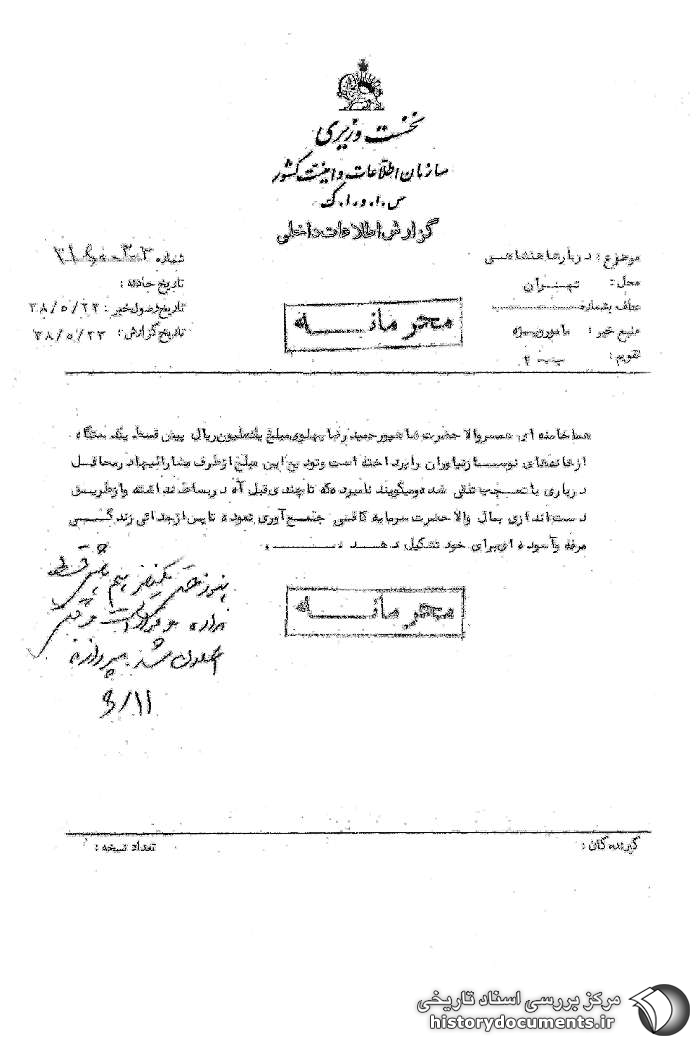 نخست وزیری
سازمان اطلاعات و امنیت کشور
س.ا.و.ا.ک
گزارش اطلاعات داخلی
موضوع: دربار شاهنشاهی
محل: تهران
عطف بشماره
منبع خبر: مامور ویژه
تقویم: ب ـ ۲
شماره
تاریخ حادثه:
تاریخ وصول خبر: ۳۸/۵/۲۲
تاریخ گزارش: ۳۸/۵/۲۳
محرمانه
هما خامنه ای همسر والاحضرت شاهپور حمیدرضا پهلوی مبلغ یکملیون ریال پیش قسط یک دستگاه
از خانه‌های نوساز نیاوران را پرداخته است و تودیع این مبلغ از طرف مشارالیها در محافل
درباری با تعجب تلقی شده و میگویند نامبرده که تا چندی قبل آه در بساط نداشته و از طریق
دست اندازی بمال والاحضرت سرمایه کافی جمع آوری نموده تا پس از جدائی زندگی
مرفه و آسوده ای برای خود تشکیل دهد.
هنوز حتی یکنفر هم پیش قسط
نداده
۹/۱۱
محرمانه
گیرندگان:
تعداد نسخه:
مرکز بررسی اسناد تاریخی
historydocuments.ir